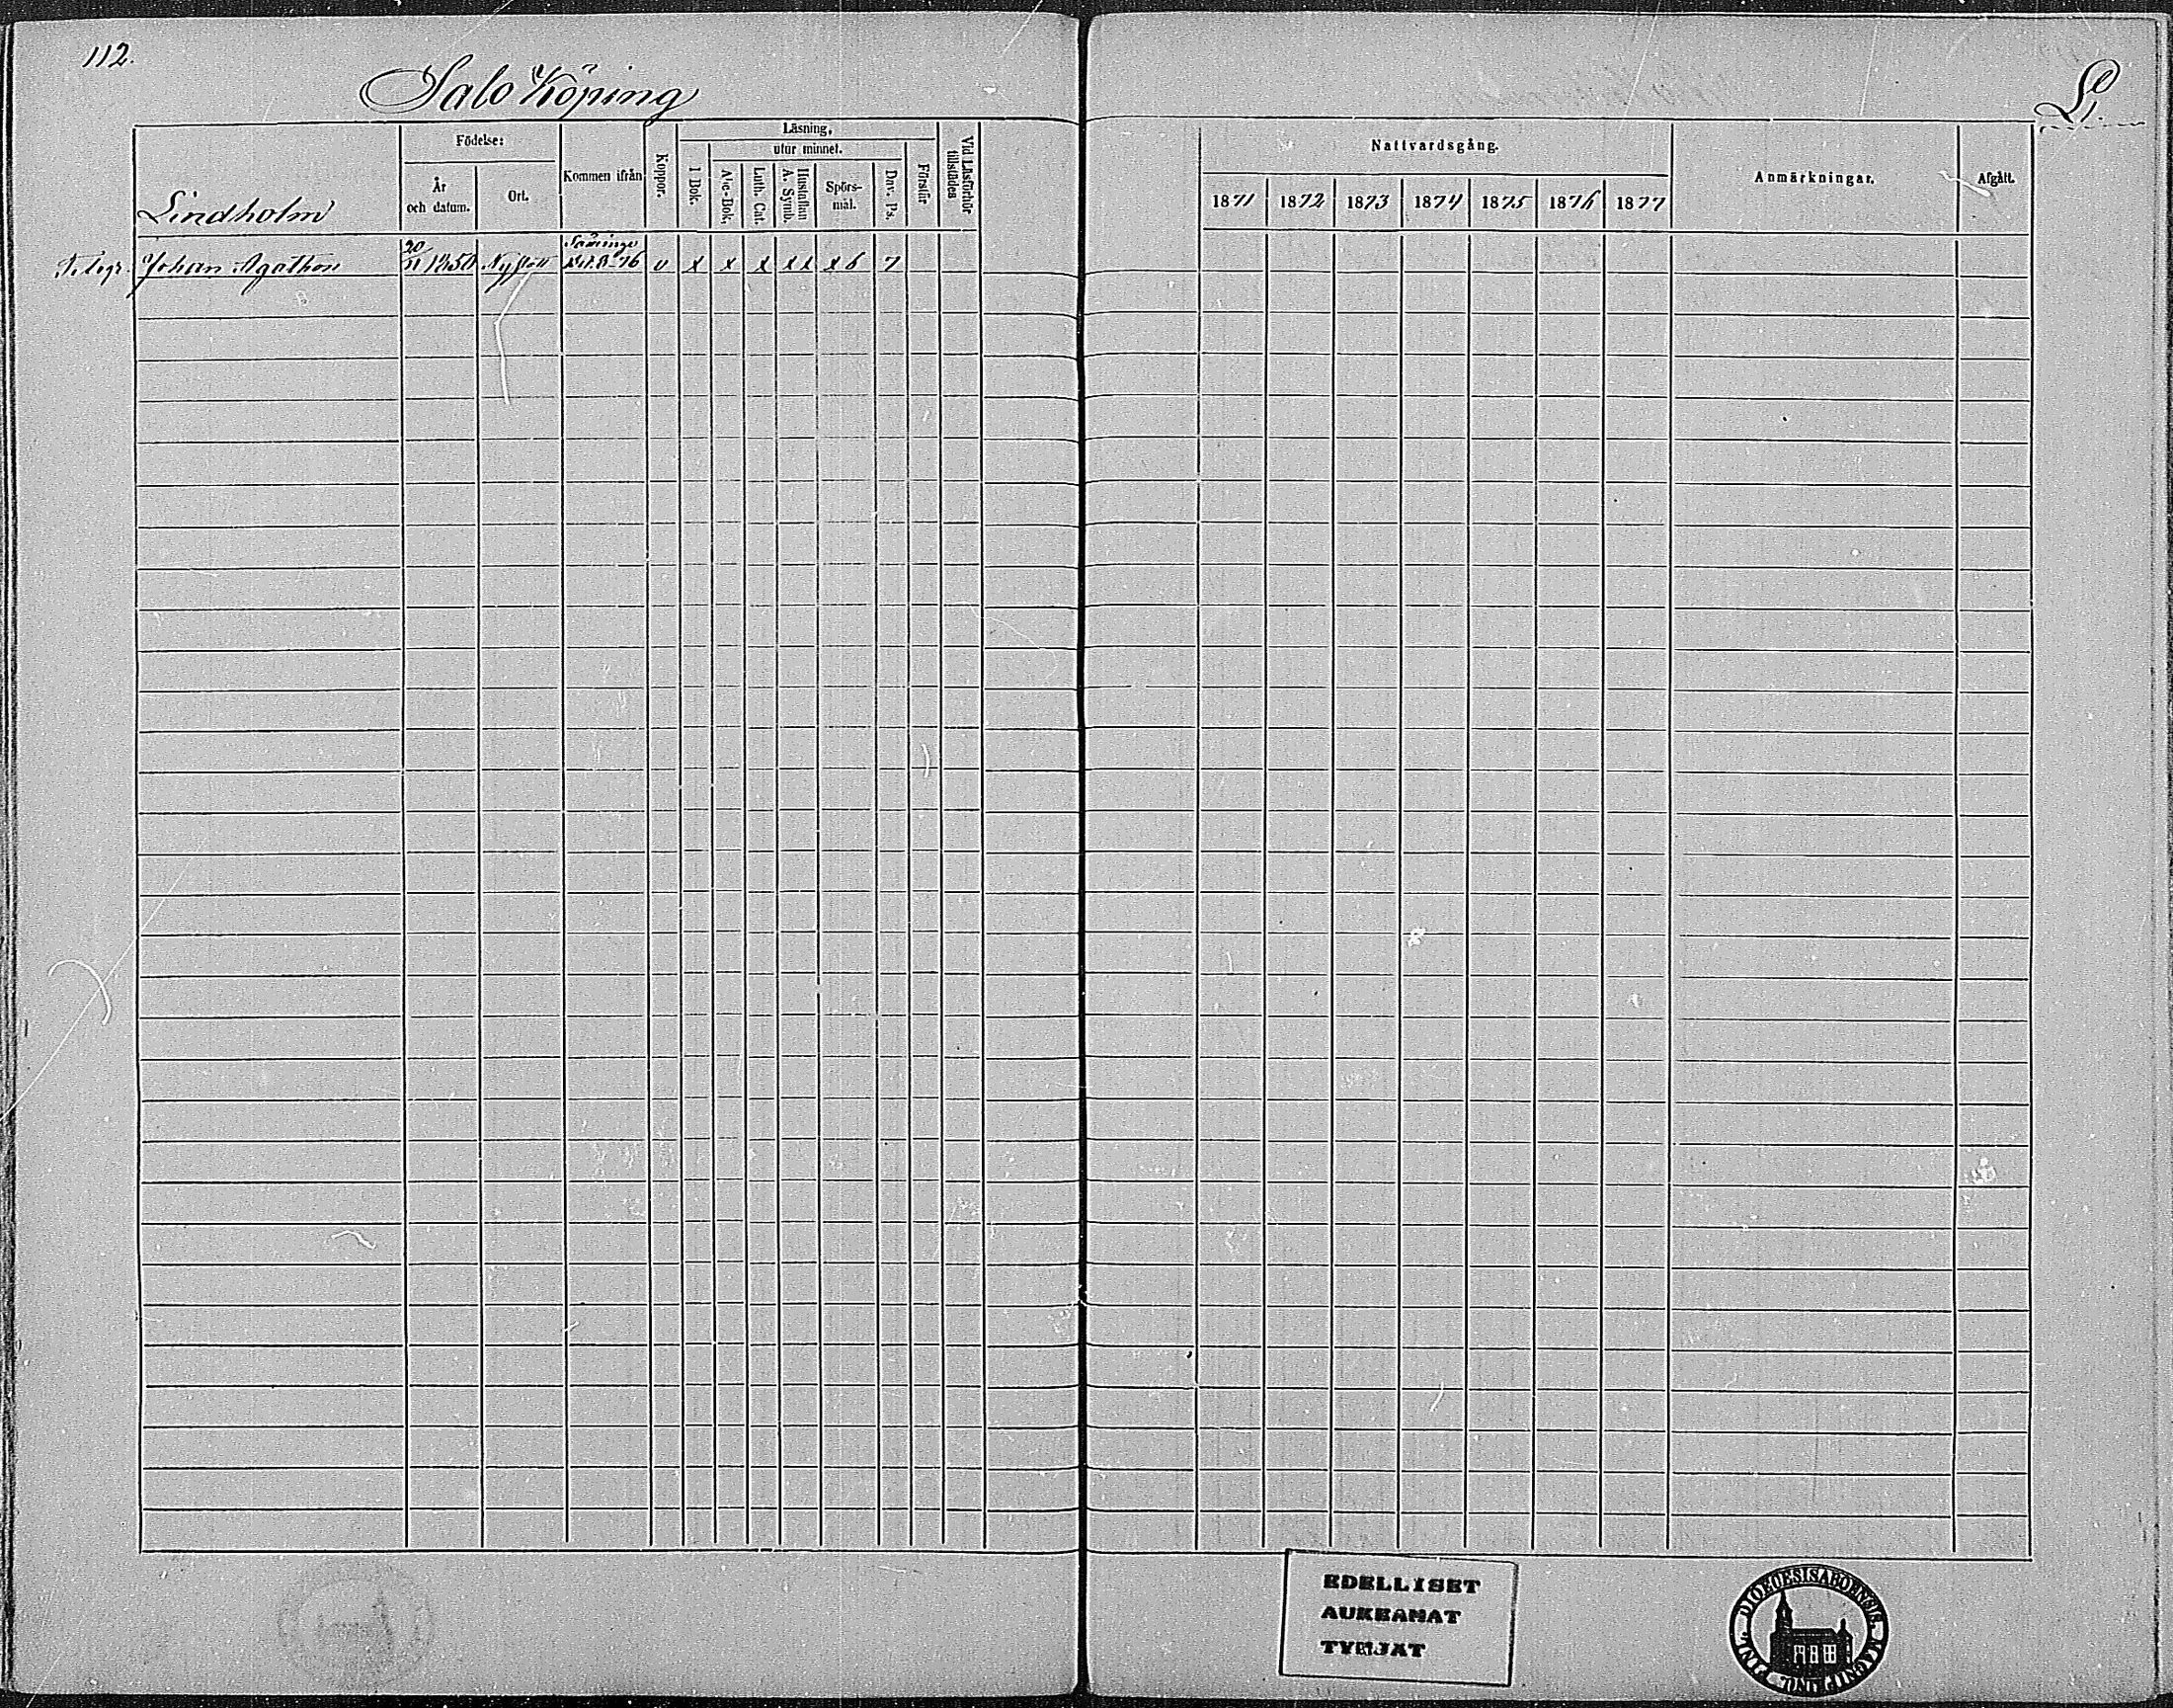 112.
Salo Köping
L.
Födelse:
År och datum.
Ort.
Kommen ifrån
Koppor.
Läsning,
1 Bok.
utur minnet.
Abc-Bok.
Luth. Cat.
Hustaflan A. Symb.
Spörs-mål.
Dav. Ps.
Förstår
Vid Läsförhör tillstädes
Nattvardsgång.
1871 1872 1873 1874 1875 1876 1877
Anmärkningar.
Afgått.
Lindholm
Johan Agathon 20/11 1850 Nystad 76 v x x x x x x 6 7
EDELLISET
AUKEAMAT
TYHJÄT
DIOECESIS ABOENSIS